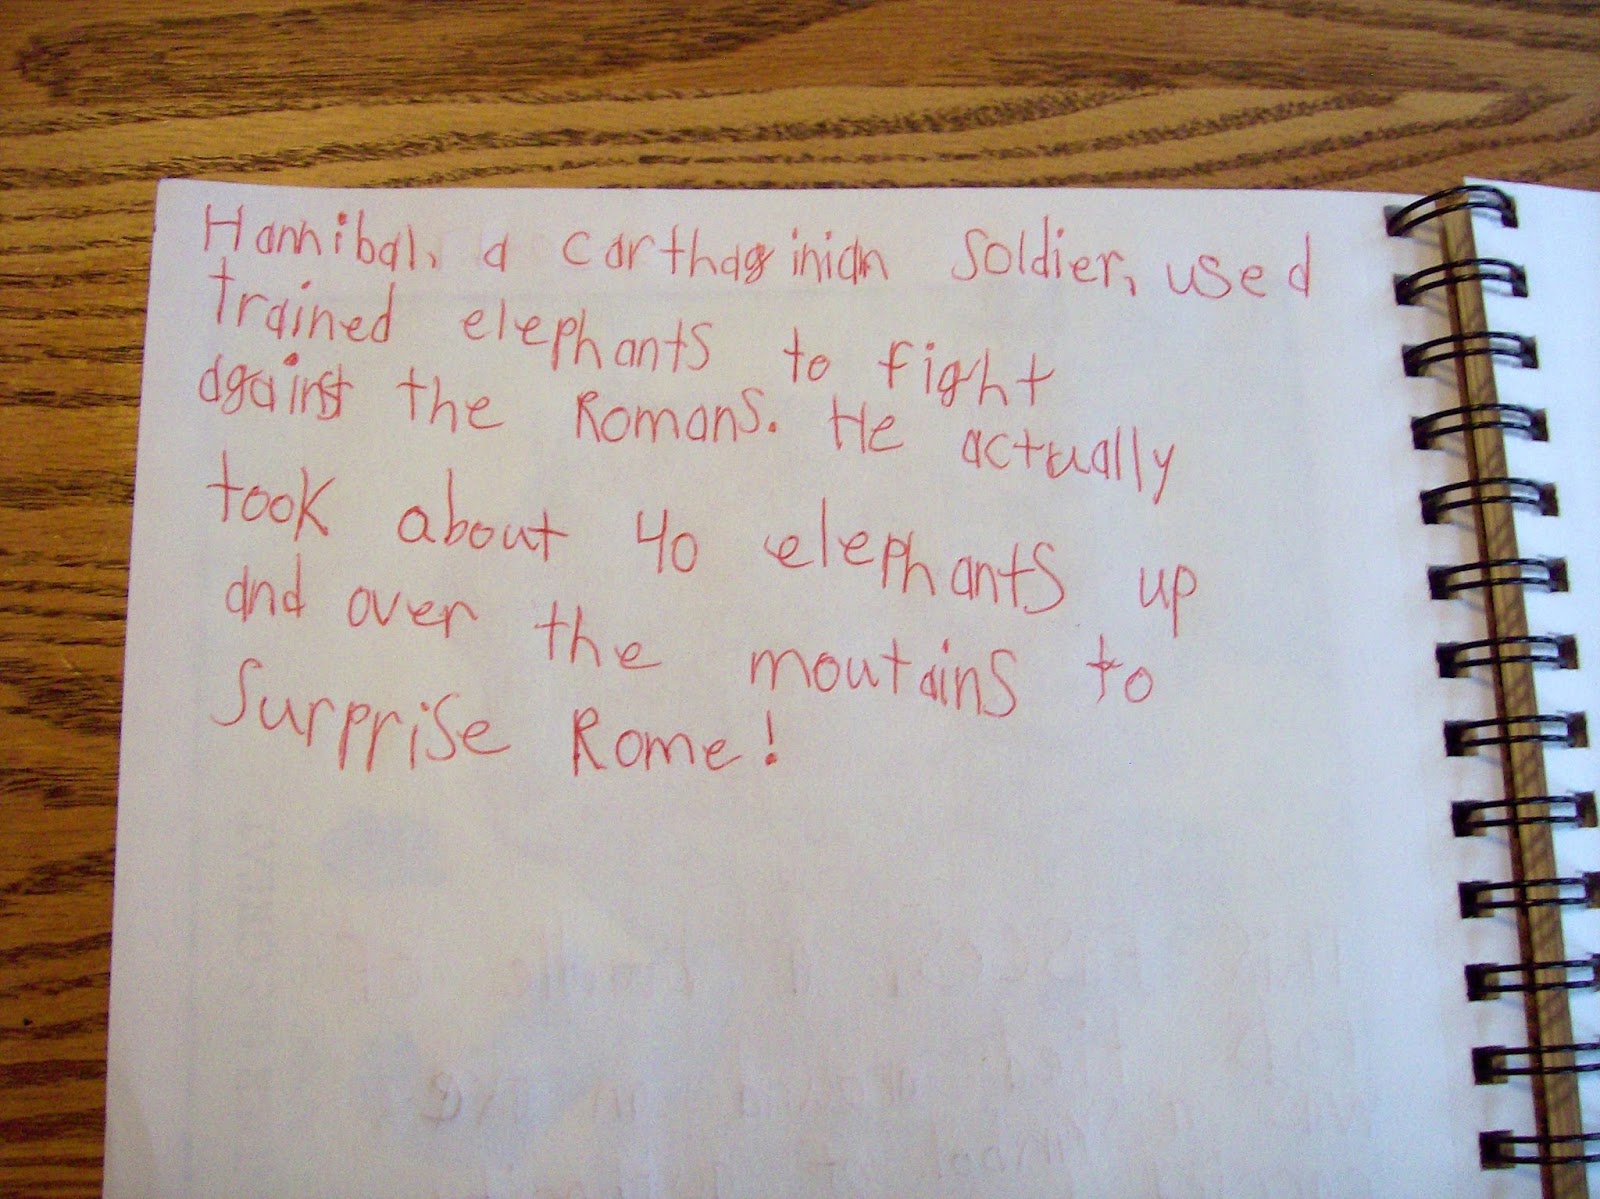 Hannibal, a carthaginian soldier, used
trained elephants to fight
against the Romans. He actually
took about 40 elephants up
and over the moutains to
surprise Rome!